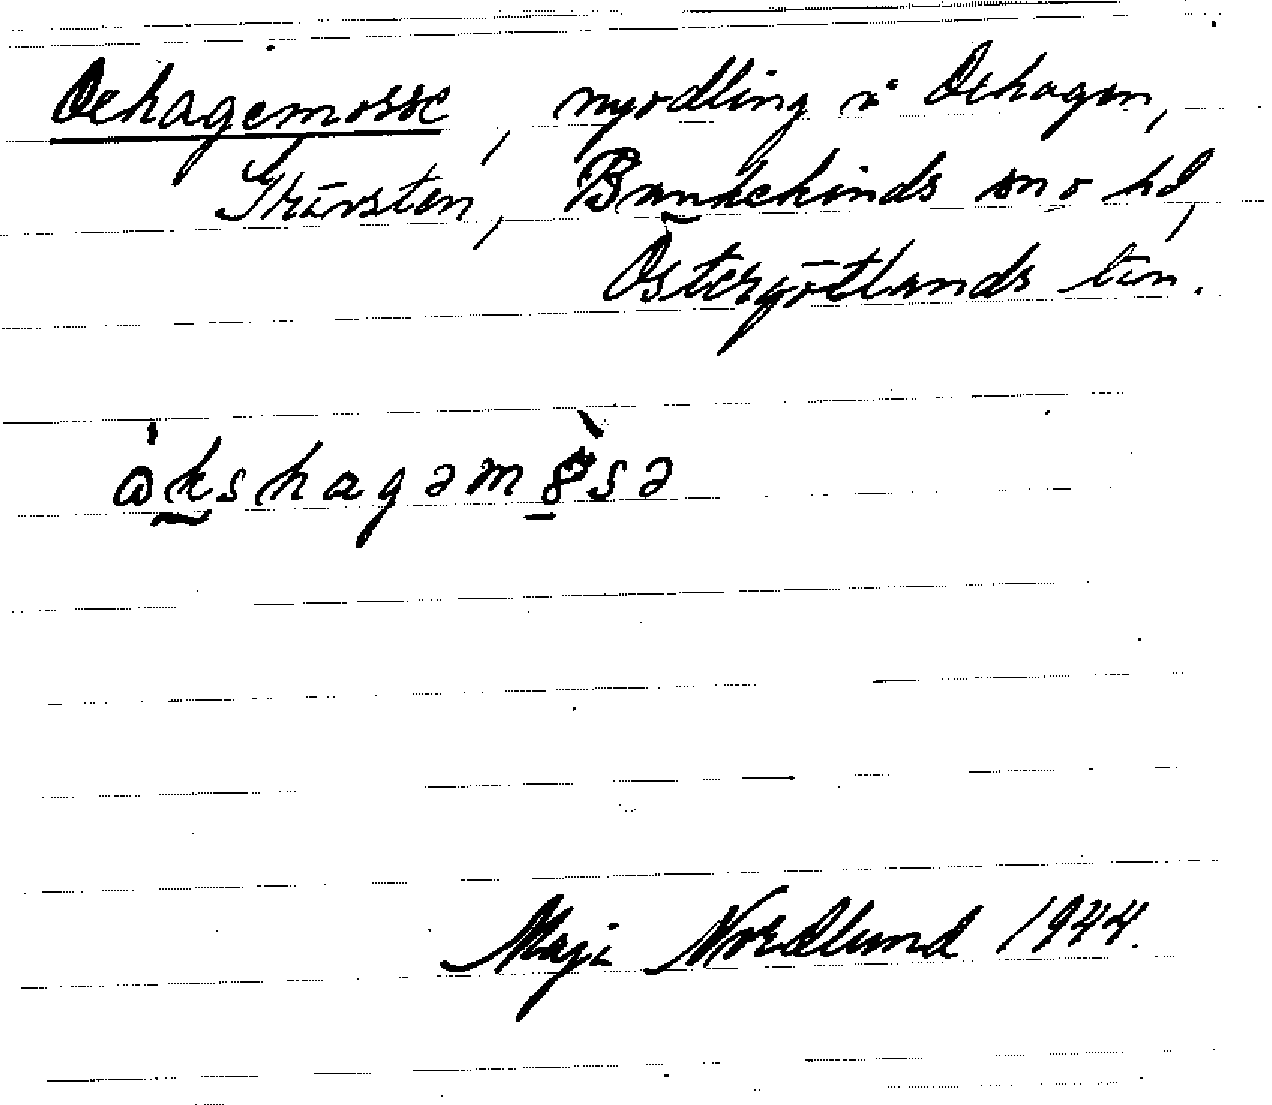 Oehagemosse, nyodling i Oehagen,
Skärsten, Bankekinds sn o hd,
Östergötlands län.
åkshagəmòsə
Maji Nordlund 1944.